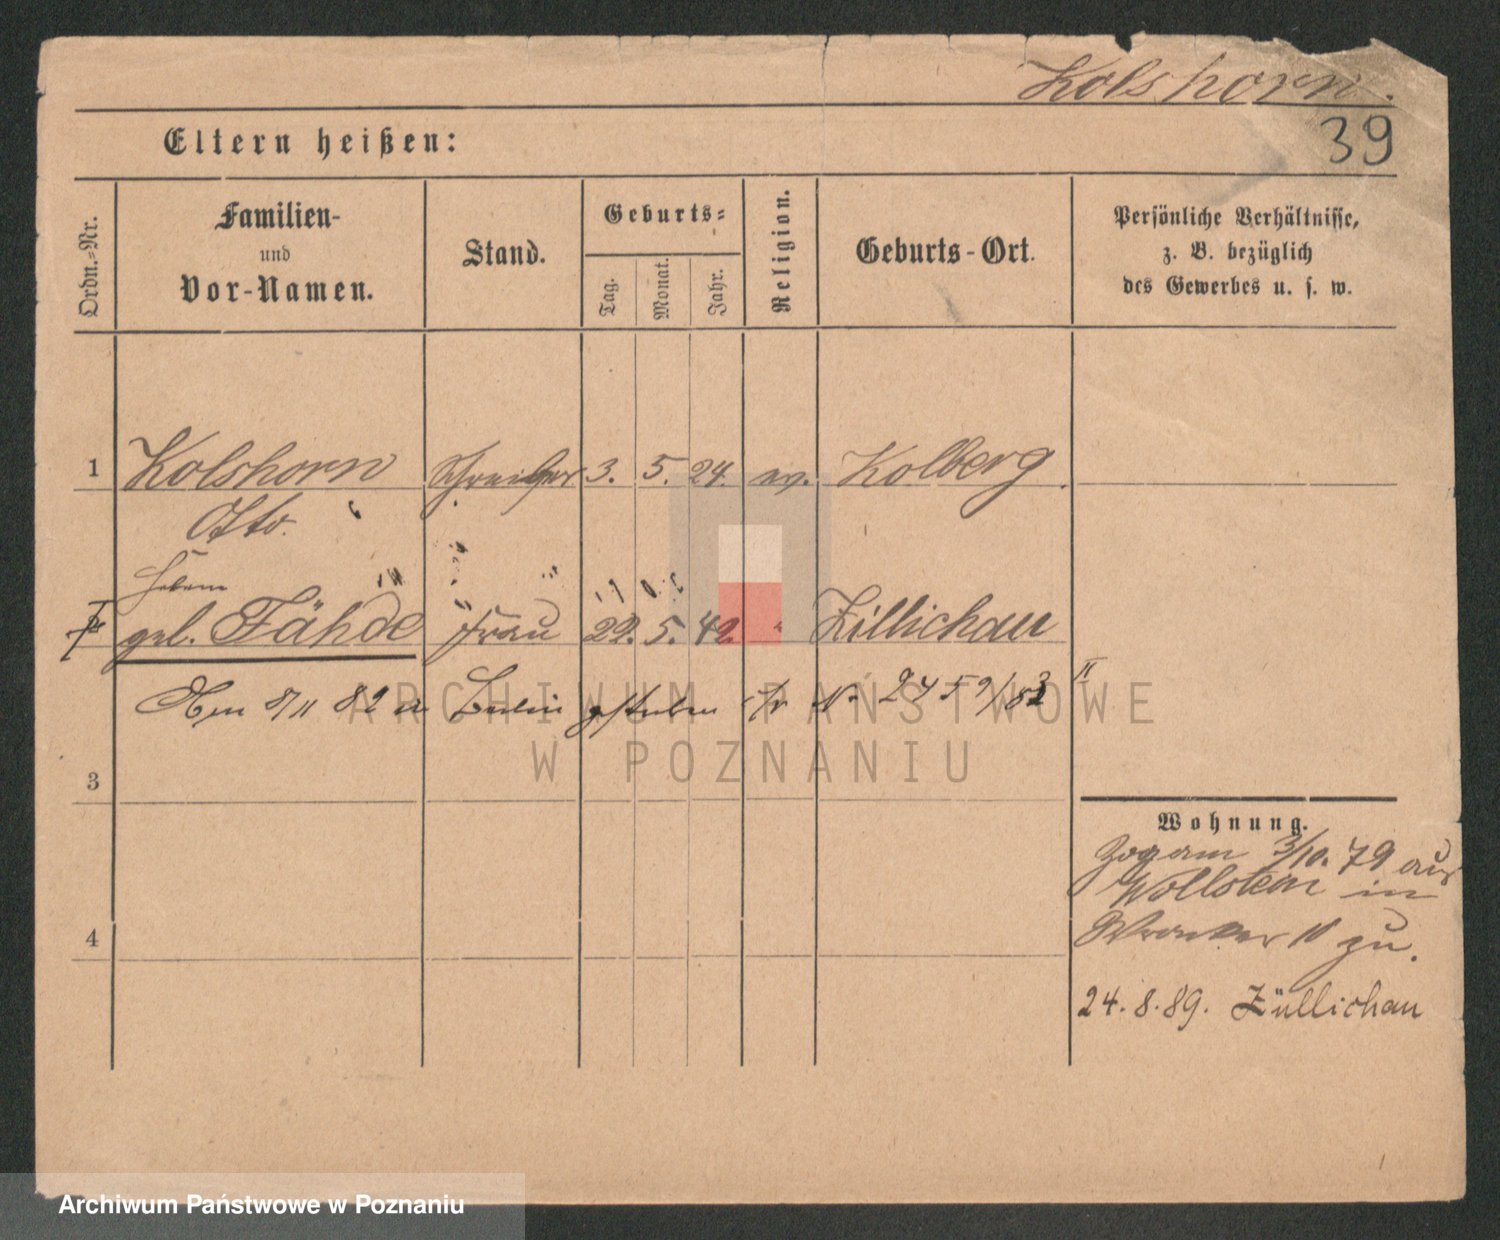 Kolshorn.
39
Eltern heißen:
Ordn.-Nr.
Familien-
und
Vor-Namen.
Stand.
Geburts-
Tag.
Monat.
Jahr.
Religion.
Geburts-Ort.
Persönliche Verhältnisse,
z. B. bezüglich
des Gewerbes u. s. w.
1 Kolshorn Schreiber 3. 5. 24. ev. Kolberg.
Otto.
geb. Fähde Frau 22. 5. 42. " Zillichau
8/11 82 Berlin gestorben 2459/83 II
ARCHIWUM PAŃSTWOWE
W POZNANIU
3
Wohnung.
Zog am 3/10. 79 aus
Wollstein in
Wronker 10 zu.
4
24. 8. 89. Züllichau
Archiwum Państwowe w Poznaniu